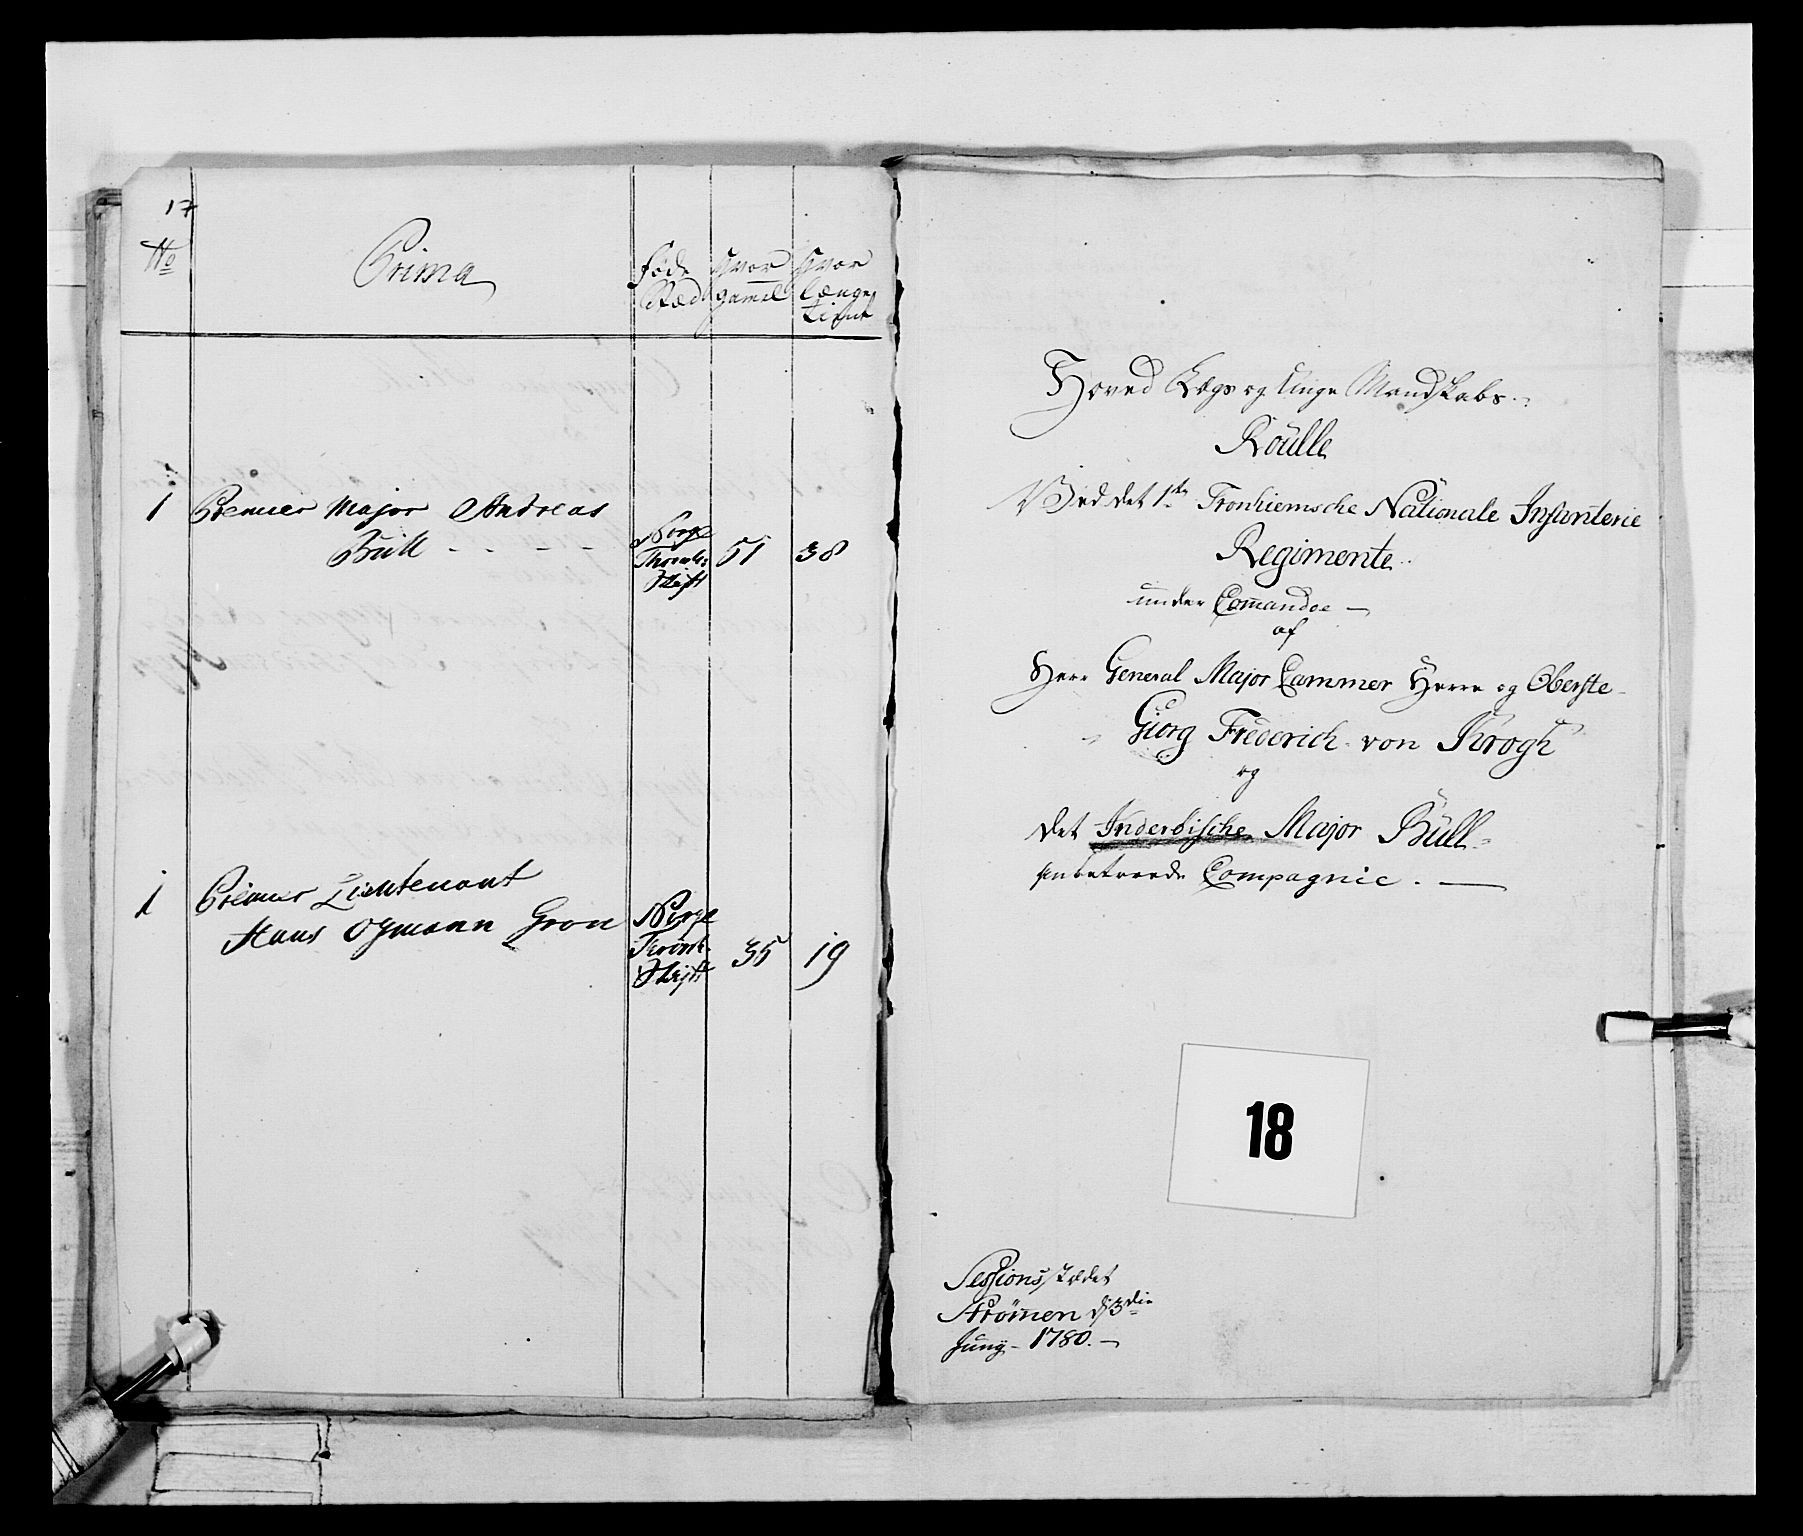 17
No
Prima
Føde
Stæd
hvor
gamel
hvor
længe
tient
1 Premier Major Andreas
Büll - - - -
Norge
Thronh:
Stift
51
38
1 Premier Lieutenant
Hans Ogmann Gron
Norge
Tronh.
Stift
35
19
Hoved Lægs og Unge Mandskabs
Roülle
Ved det 1ste Tronhiemsche Nationale Infanterie
Regimente
under Comandoe
af
Herr General Major Cammer Herre og Oberste
Giorg Frederich von Krogh
og
det Inderöische Major Büll
anbetroede Compagnie.
18
Sessions stædet
Strömen d 3die
Juny - 1780.